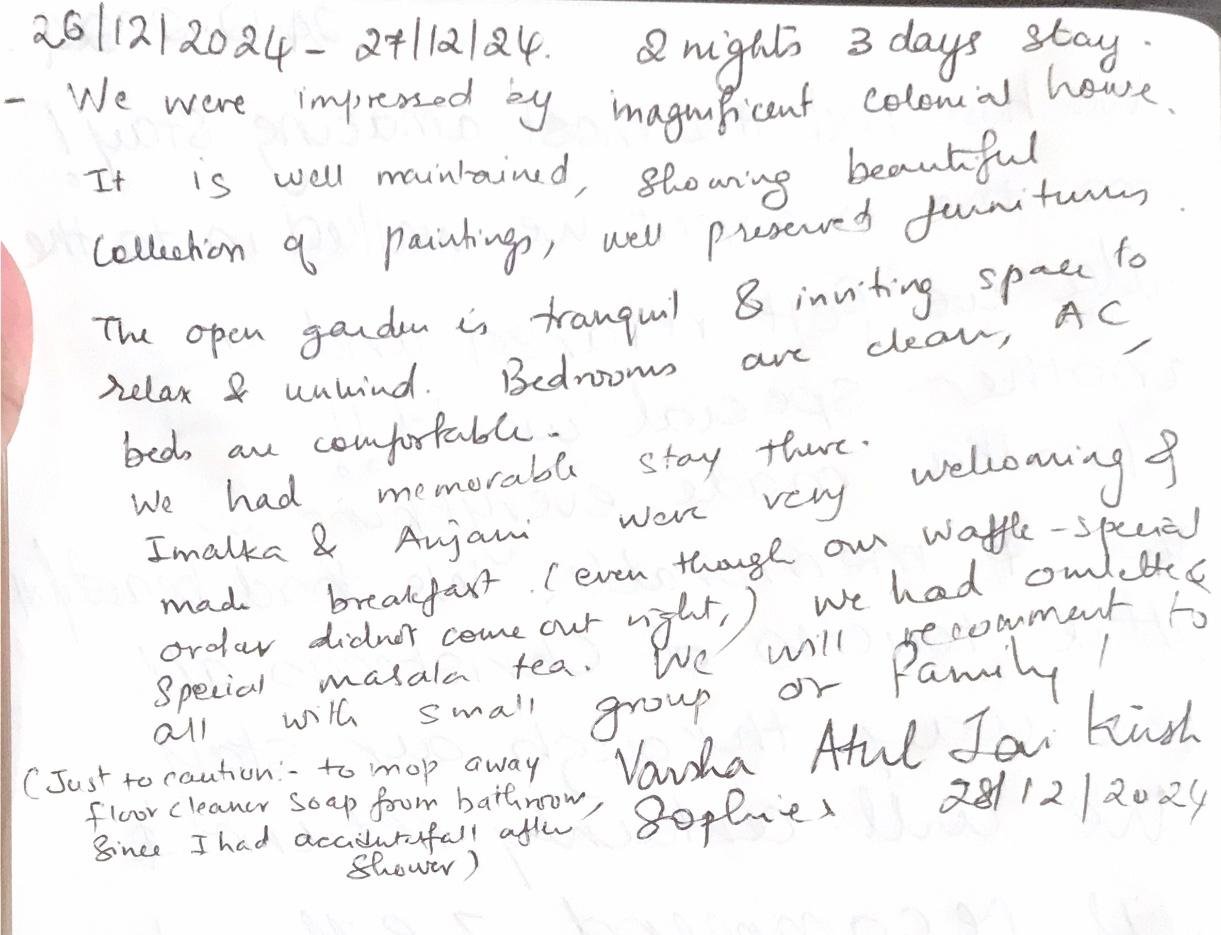 26/12/2024 - 27/12/24. 2 nights 3 days stay.
- We were impressed by magnificent colonial house.
It is well maintained, showing beautiful
Collection of paintings, well preserved furnitures.
The open garden is tranquil & inviting space to
relax & unwind. Bedrooms are clean, AC,
beds are comfortable.
We had memorable stay there.
Imalka & Anjani were very welcoming &
made breakfast. (even though our waffle-special
order didnot come out right,) we had omlette &
Special masala tea. We will recomment to
all with small group or Family!
(Just to caution:- to mop away
floor cleaner soap from bathroom,
Since I had accidental fall after
Shower)
Varsha Atul Jai Kush
28/12/2024